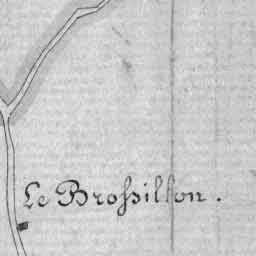 Le Broſsilſon.